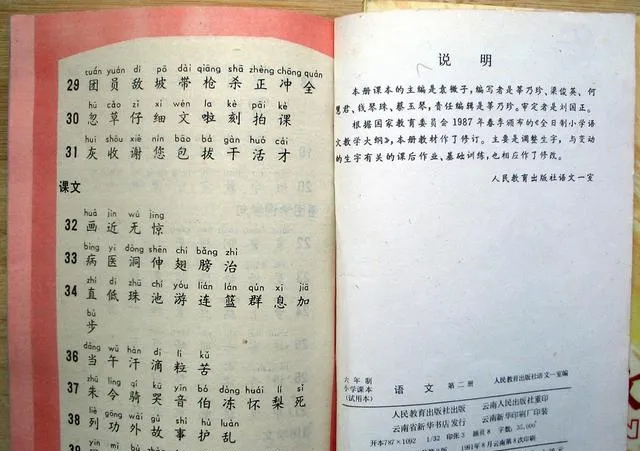 tuán yuán dí pō dài qiāng shā zhèng chōng quán
29 团 员 敌 坡 带 枪 杀 正 冲 全
hū cǎo zǐ xì wén la kè pāi kè
30 忽 草 仔 细 文 啦 刻 拍 课
huī shōu xiè nín bāo bá gàn huó cái
31 灰 收 谢 您 包 拔 干 活 才
课文
huà jìn wú jīng
32 画 近 无 惊
bìng yī dòng shēn chì bǎng zhì
33 病 医 洞 伸 翅 膀 治
zhí dī zhū chí yóu lián lán qún xī jiā
34 直 低 珠 池 游 连 篮 群 息 加
bù
步
dāng wǔ hàn dī lì kǔ
36 当 午 汗 滴 粒 苦
zhū lìng qí kū yīn bó dòng huái lí sǐ
37 朱 令 骑 哭 音 伯 冻 怀 梨 死
liè gōng wài gù shì hù luàn
38 列 功 外 故 事 护 乱
说明
本册课本的主编是袁微子，编写者是莘乃珍、梁俊英、何
慧君、钱琴珠、蔡玉琴，责任编辑是莘乃珍。审定者是刘国正。
根据国家教育委员会1987年春季颁布的《全日制小学语
文教学大纲》，本册教材作了修订。主要是调整生字，与变动
的生字有关的课后作业、基础训练，也相应作了修改。
人民教育出版社语文一室
六年制
小学课本
（试用本）
语文 第二册 人民教育出版社语文一室编
人民教育出版社出版 云南人民出版社重印
云南省新华书店发行 云南新华印刷厂印装
开本787×1092 1/32 印张3 插页8 字数35,000
1991年8月云南第8次印刷